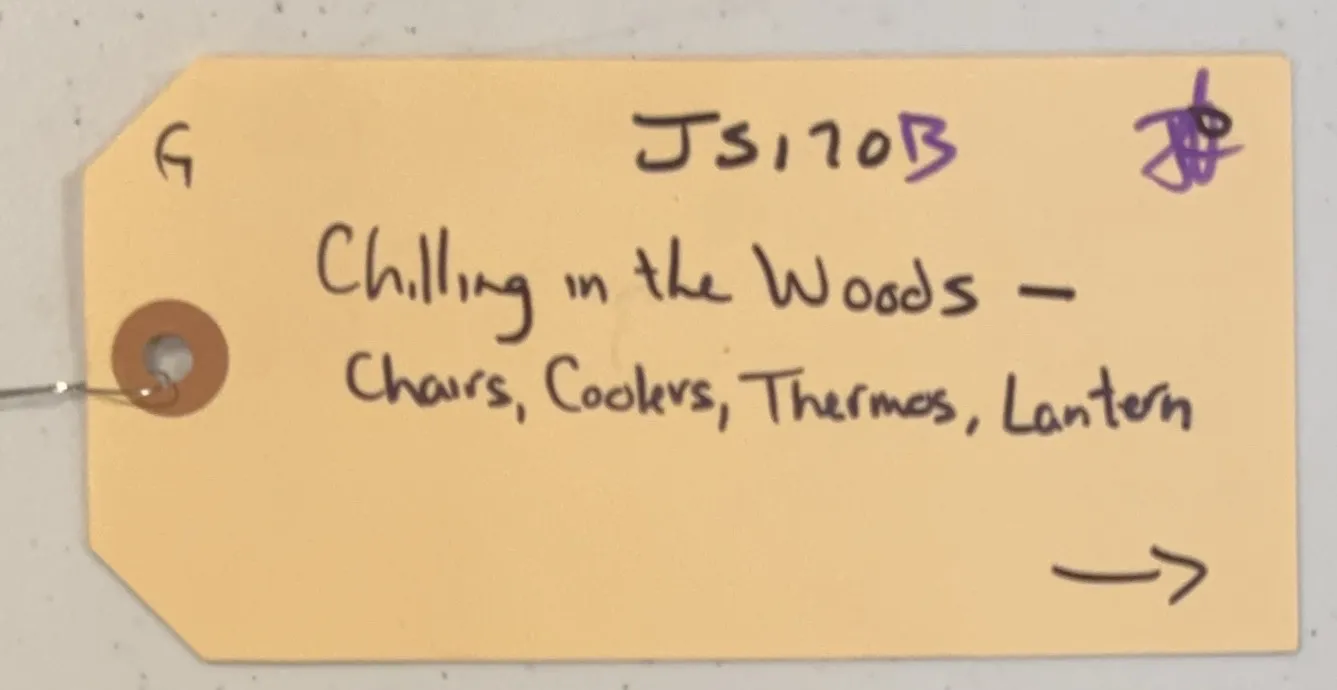 G
JS170B
Chilling in the Woods —
Chairs, Coolers, Thermos, Lantern
→